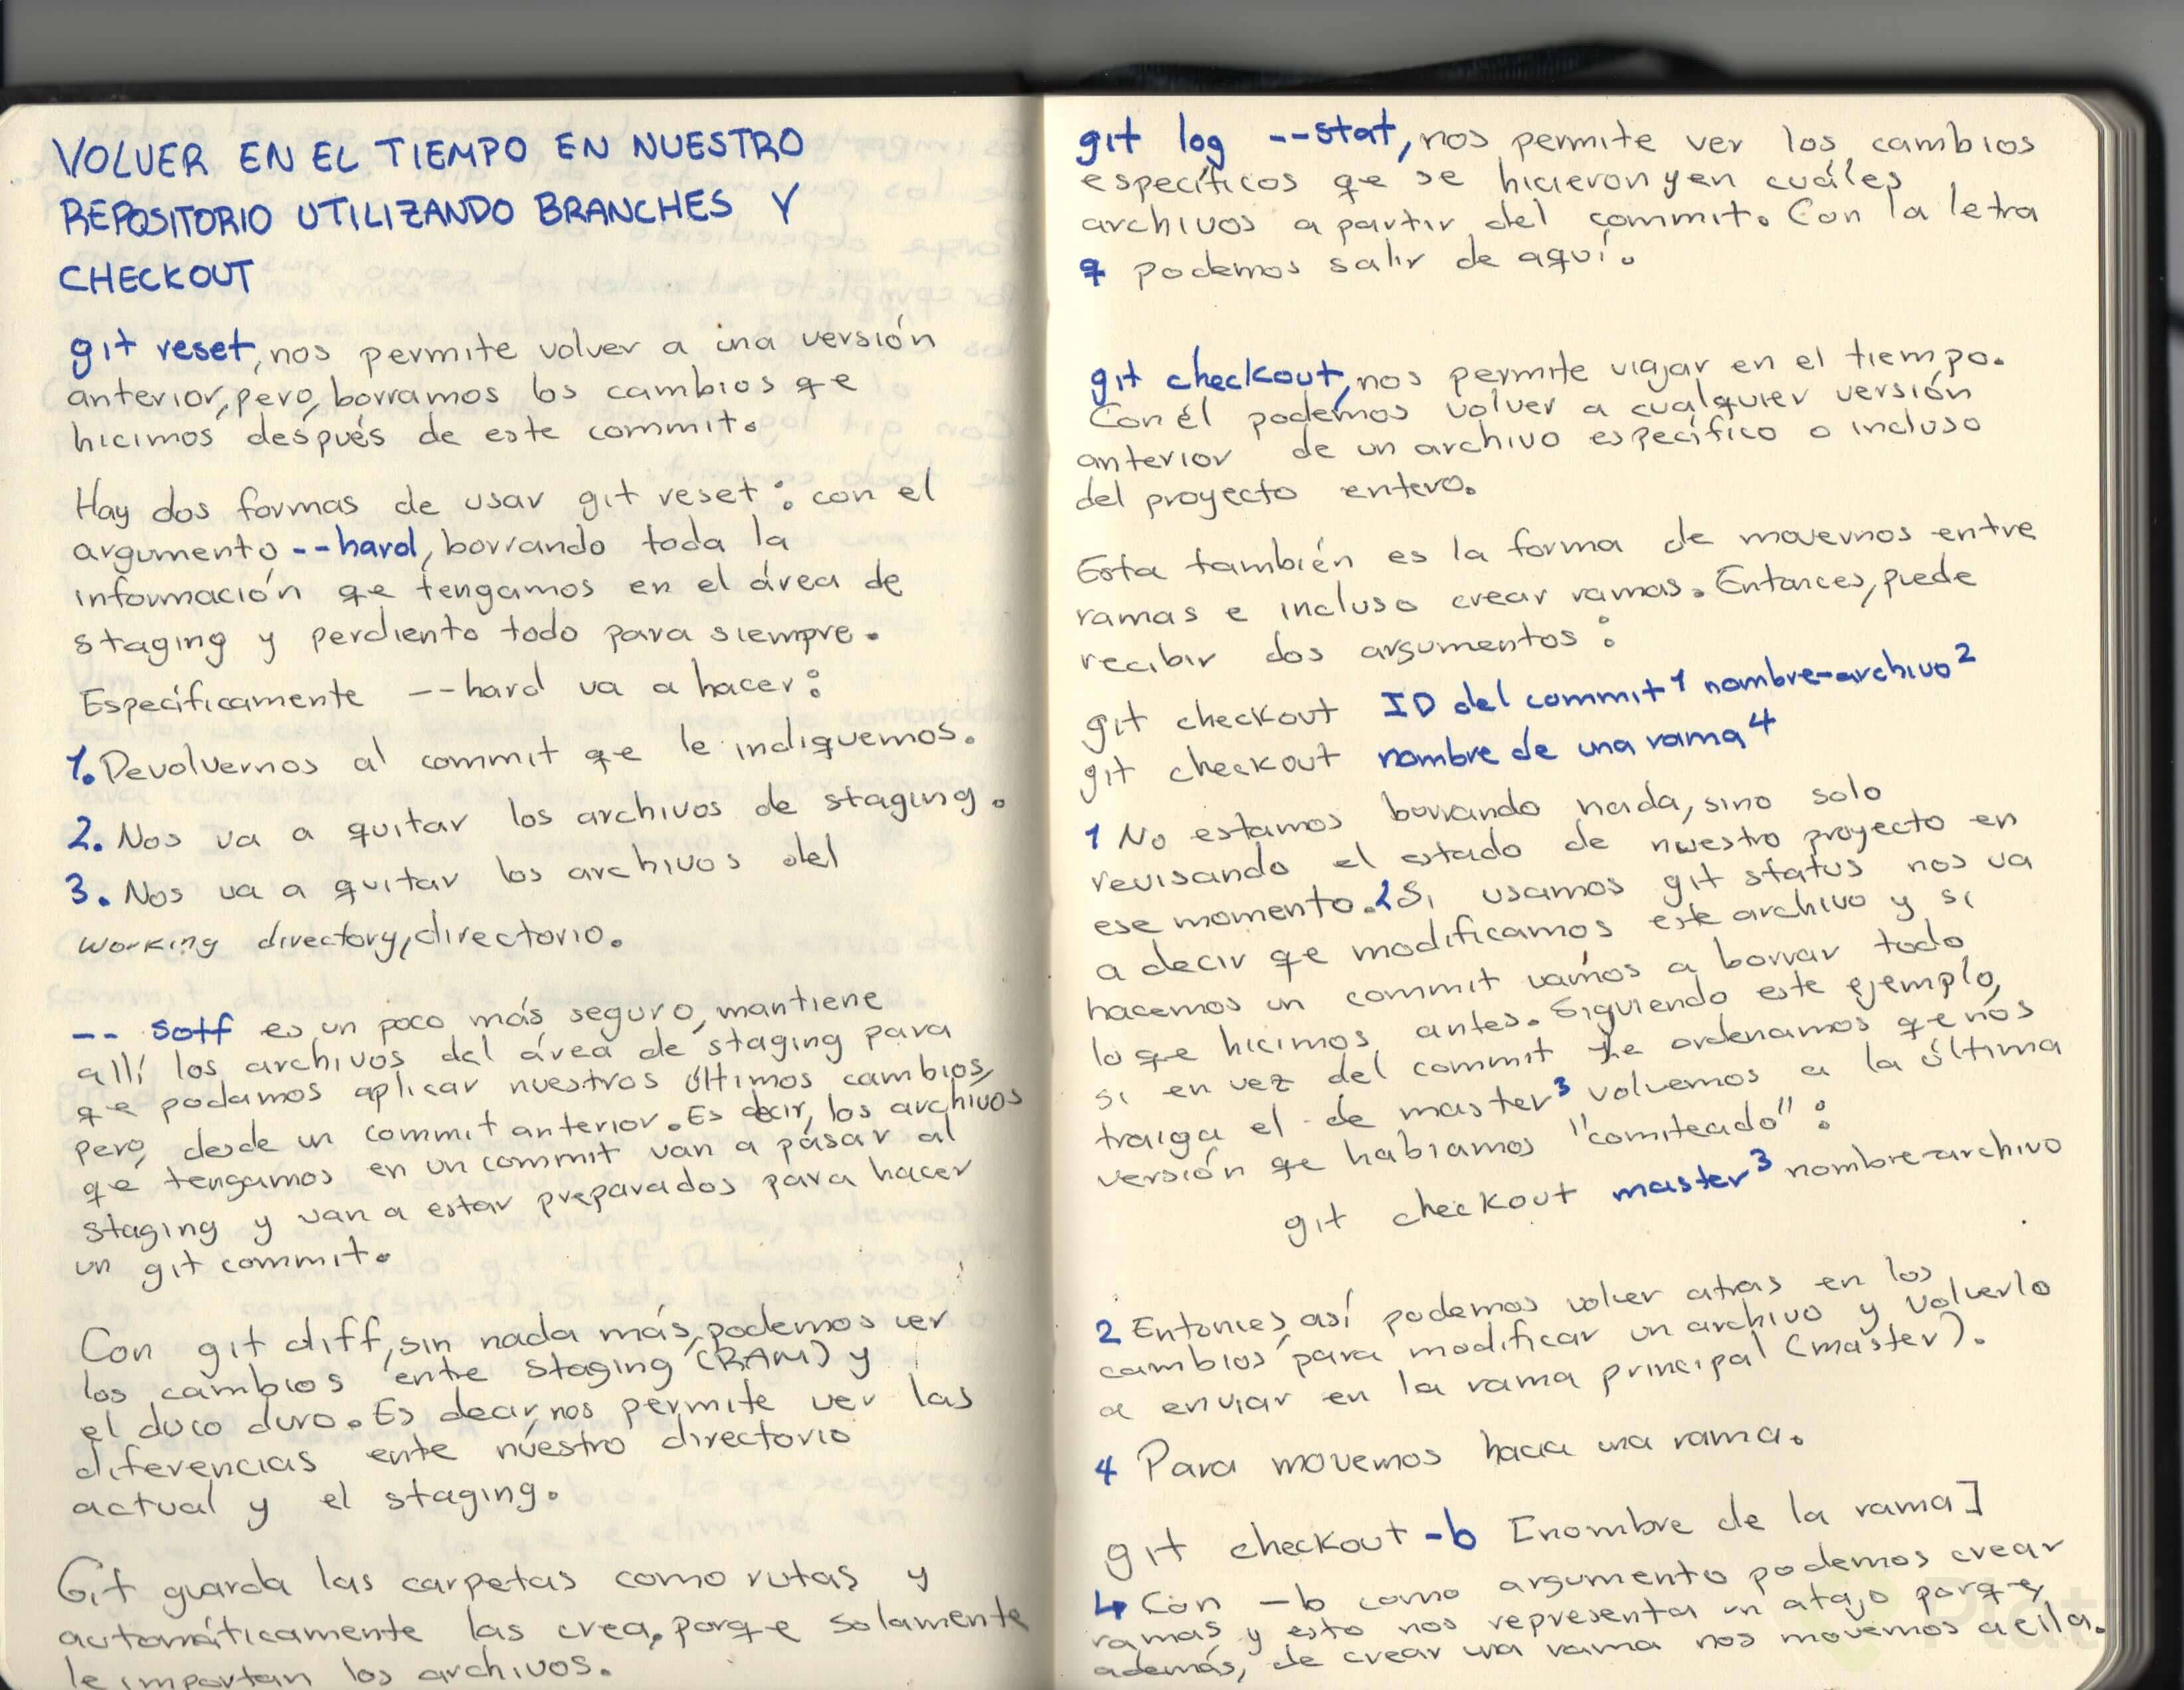 VOLVER EN EL TIEMPO EN NUESTRO
REPOSITORIO UTILIZANDO BRANCHES Y
CHECKOUT
git reset, nos permite volver a una versión
anterior, pero, borramos los cambios qe
hicimos después de este commit.
Hay dos formas de usar git reset: con el
argumento --hard, borrando toda la
información qe tengamos en el área de
staging y perdiento todo para siempre.
Específicamente --hard va a hacer:
1. Devolvernos al commit qe le indiquemos.
2. Nos va a quitar los archivos de staging.
3. Nos va a quitar los archivos del
working directory, directorio.
-- soff es un poco más seguro, mantiene
allí los archivos del área de staging para
qe podamos aplicar nuestros últimos cambios,
pero, desde un commit anterior. Es decir, los archivos
qe tengamos en un commit van a pasar al
staging y van a estar preparados para hacer
un git commit.
Con git diff, sin nada más, podemos ver
los cambios ente staging (RAM) y
el duco duro. Es decir, nos permite ver las
diferencias ente nuestro directorio
actual y el staging.
Git guarda las carpetas como rutas y
automáticamente las crea, porqe solamente
le importan los archivos.
git log --stat, nos permite ver los cambios
específicos qe se hicieron y en cuáles
archivos a partir del commit. Con la letra
q podemos salir de aquí.
git checkout, nos permite viajar en el tiempo.
Con él podemos volver a cualquier versión
anterior de un archivo específico o incluso
del proyecto entero.
Esta también es la forma de movernos entre
ramas e incluso crear ramas. Entonces, puede
recibir dos argumentos:
git checkout ID del commit¹ nombre-archivo²
git checkout nombre de una rama⁴
1 No estamos borrando nada, sino solo
revisando el estado de nuestro proyecto en
ese momento. 2 Si usamos git status nos va
a decir qe modificamos este archivo y si
hacemos un commit vamos a borrar todo
lo qe hicimos antes. Siguiendo este ejemplo,
si en vez del commit le ordenamos qe nos
traiga el de master³ volvemos a la última
versión qe habíamos "comiteado":
git checkout master³ nombre-archivo
2 Entonces, así podemos volver atras en los
cambios para modificar un archivo y volverlo
a enviar en la rama principal (master).
4 Para movernos hacia una rama.
git checkout -b [nombre de la rama]
↳ Con -b como argumento podemos crear
ramas y esto nos representa un atajo porqe,
además, de crear una rama nos movemos a ella.
Plat